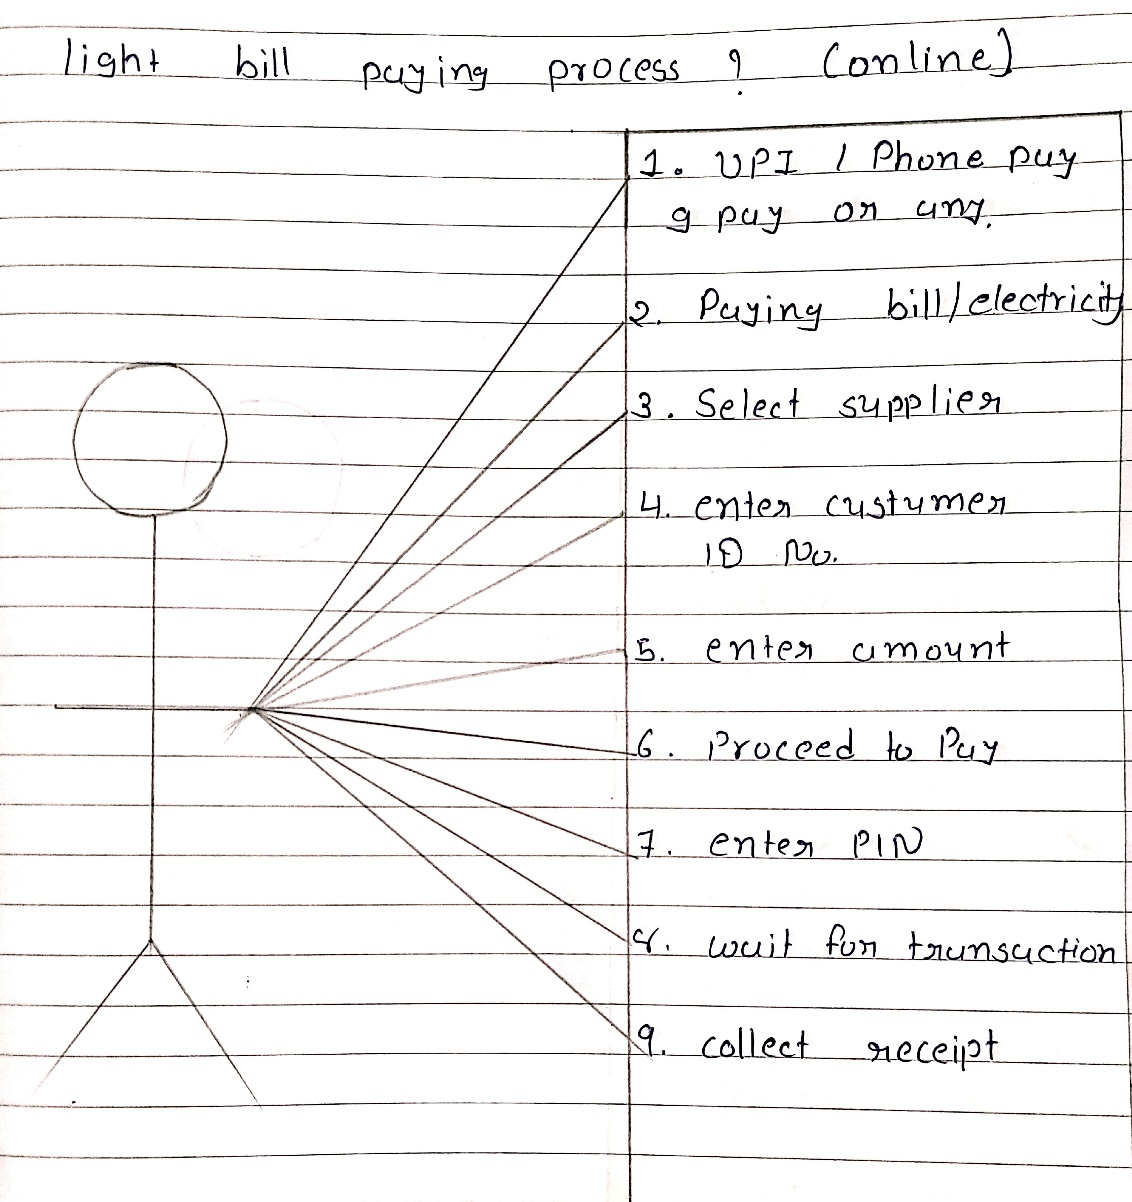 light bill paying process ? (online)
1. UPI / Phone pay
g pay or any.
2. Paying bill/electricity
3. Select supplier
4. enter custumer
ID No.
5. enter amount
6. Proceed to Pay
7. enter PIN
8. wait for transaction
9. collect receipt